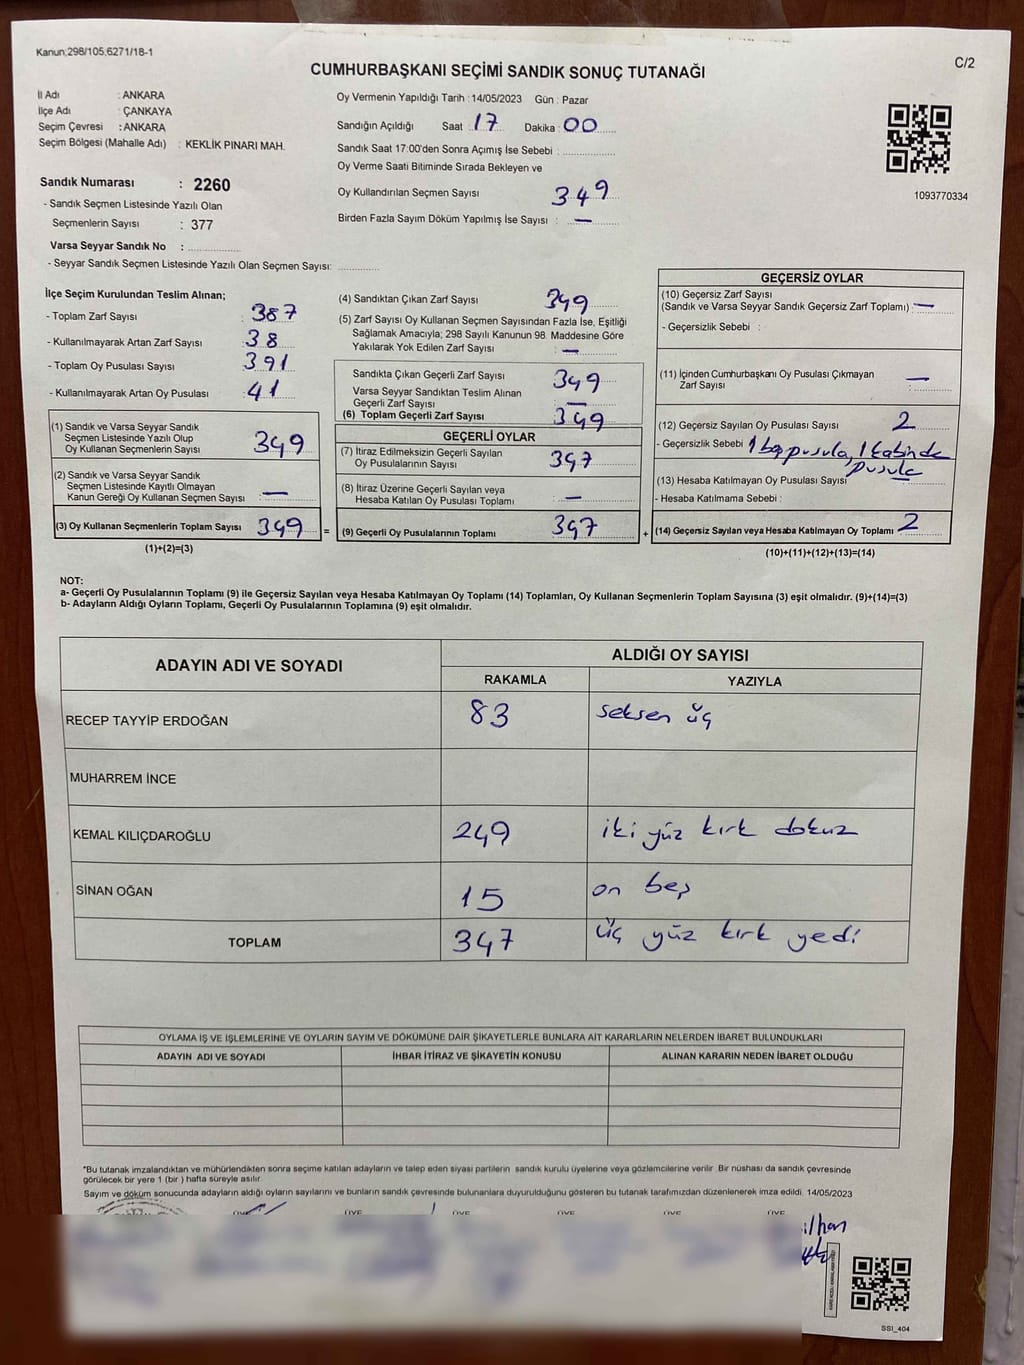 Kanun:298/105,6271/18-1
C/2
CUMHURBAŞKANI SEÇİMİ SANDIK SONUÇ TUTANAĞI
İl Adı : ANKARA
İlçe Adı : ÇANKAYA
Seçim Çevresi : ANKARA
Seçim Bölgesi (Mahalle Adı) : KEKLİK PINARI MAH.
Sandık Numarası : 2260
- Sandık Seçmen Listesinde Yazılı Olan
Seçmenlerin Sayısı : 377
Varsa Seyyar Sandık No :
- Seyyar Sandık Seçmen Listesinde Yazılı Olan Seçmen Sayısı:
Oy Vermenin Yapıldığı Tarih : 14/05/2023 Gün : Pazar
Sandığın Açıldığı Saat : 17 Dakika : 00
Sandık Saat 17:00'den Sonra Açımış İse Sebebi :
Oy Verme Saati Bitiminde Sırada Bekleyen ve
Oy Kullandırılan Seçmen Sayısı 349
Birden Fazla Sayım Döküm Yapılmış İse Sayısı : —
1093770334
İlçe Seçim Kurulundan Teslim Alınan;
- Toplam Zarf Sayısı : 387
- Kullanılmayarak Artan Zarf Sayısı : 38
- Toplam Oy Pusulası Sayısı : 391
- Kullanılmayarak Artan Oy Pusulası : 41
(1) Sandık ve Varsa Seyyar Sandık
Seçmen Listesinde Yazılı Olup
Oy Kullanan Seçmenlerin Sayısı 349
(2) Sandık ve Varsa Seyyar Sandık
Seçmen Listesinde Kayıtlı Olmayan
Kanun Gereği Oy Kullanan Seçmen Sayısı —
(3) Oy Kullanan Seçmenlerin Toplam Sayısı 349
(1)+(2)=(3)
=
(4) Sandıktan Çıkan Zarf Sayısı 349
(5) Zarf Sayısı Oy Kullanan Seçmen Sayısından Fazla İse, Eşitliği
Sağlamak Amacıyla; 298 Sayılı Kanunun 98. Maddesine Göre
Yakılarak Yok Edilen Zarf Sayısı —
Sandıkta Çıkan Geçerli Zarf Sayısı 349
Varsa Seyyar Sandıktan Teslim Alınan
Geçerli Zarf Sayısı —
(6) Toplam Geçerli Zarf Sayısı 349
GEÇERLİ OYLAR
(7) İtiraz Edilmeksizin Geçerli Sayılan
Oy Pusulalarının Sayısı 347
(8) İtiraz Üzerine Geçerli Sayılan veya
Hesaba Katılan Oy Pusulası Toplamı —
(9) Geçerli Oy Pusulalarının Toplamı 347
+
GEÇERSİZ OYLAR
(10) Geçersiz Zarf Sayısı
(Sandık ve Varsa Seyyar Sandık Geçersiz Zarf Toplamı) : —
- Geçersizlik Sebebi :
(11) İçinden Cumhurbaşkanı Oy Pusulası Çıkmayan
Zarf Sayısı —
(12) Geçersiz Sayılan Oy Pusulası Sayısı 2
- Geçersizlik Sebebi 1 boş pusula, 1 kabinde
pusula
(13) Hesaba Katılmayan Oy Pusulası Sayısı
- Hesaba Katılmama Sebebi :
(14) Geçersiz Sayılan veya Hesaba Katılmayan Oy Toplamı 2
(10)+(11)+(12)+(13)=(14)
NOT:
a- Geçerli Oy Pusulalarının Toplamı (9) ile Geçersiz Sayılan veya Hesaba Katılmayan Oy Toplamı (14) Toplamları, Oy Kullanan Seçmenlerin Toplam Sayısına (3) eşit olmalıdır. (9)+(14)=(3)
b- Adayların Aldığı Oyların Toplamı, Geçerli Oy Pusulalarının Toplamına (9) eşit olmalıdır.
ADAYIN ADI VE SOYADI ALDIĞI OY SAYISI
RAKAMLA YAZIYLA
RECEP TAYYİP ERDOĞAN 83 seksen üç
MUHARREM İNCE
KEMAL KILIÇDAROĞLU 249 iki yüz kırk dokuz
SİNAN OĞAN 15 on beş
TOPLAM 347 üç yüz kırk yedi
OYLAMA İŞ VE İŞLEMLERİNE VE OYLARIN SAYIM VE DÖKÜMÜNE DAİR ŞİKAYETLERLE BUNLARA AİT KARARLARIN NELERDEN İBARET BULUNDUKLARI
ADAYIN ADI VE SOYADI İHBAR İTİRAZ VE ŞİKAYETİN KONUSU ALINAN KARARIN NEDEN İBARET OLDUĞU
*Bu tutanak imzalandıktan ve mühürlendikten sonra seçime katılan adayların ve talep eden siyasi partilerin sandık kurulu üyelerine veya gözlemcilerine verilir. Bir nüshası da sandık çevresinde
görülecek bir yere 1 (bir ) hafta süreyle asılır.
Sayım ve döküm sonucunda adayların aldığı oyların sayılarını ve bunların sandık çevresinde bulunanlara duyurulduğunu gösteren bu tutanak tarafımızdan düzenlenerek imza edildi. 14/05/2023
ÜYE ÜYE ÜYE ÜYE ÜYE
SSI_404